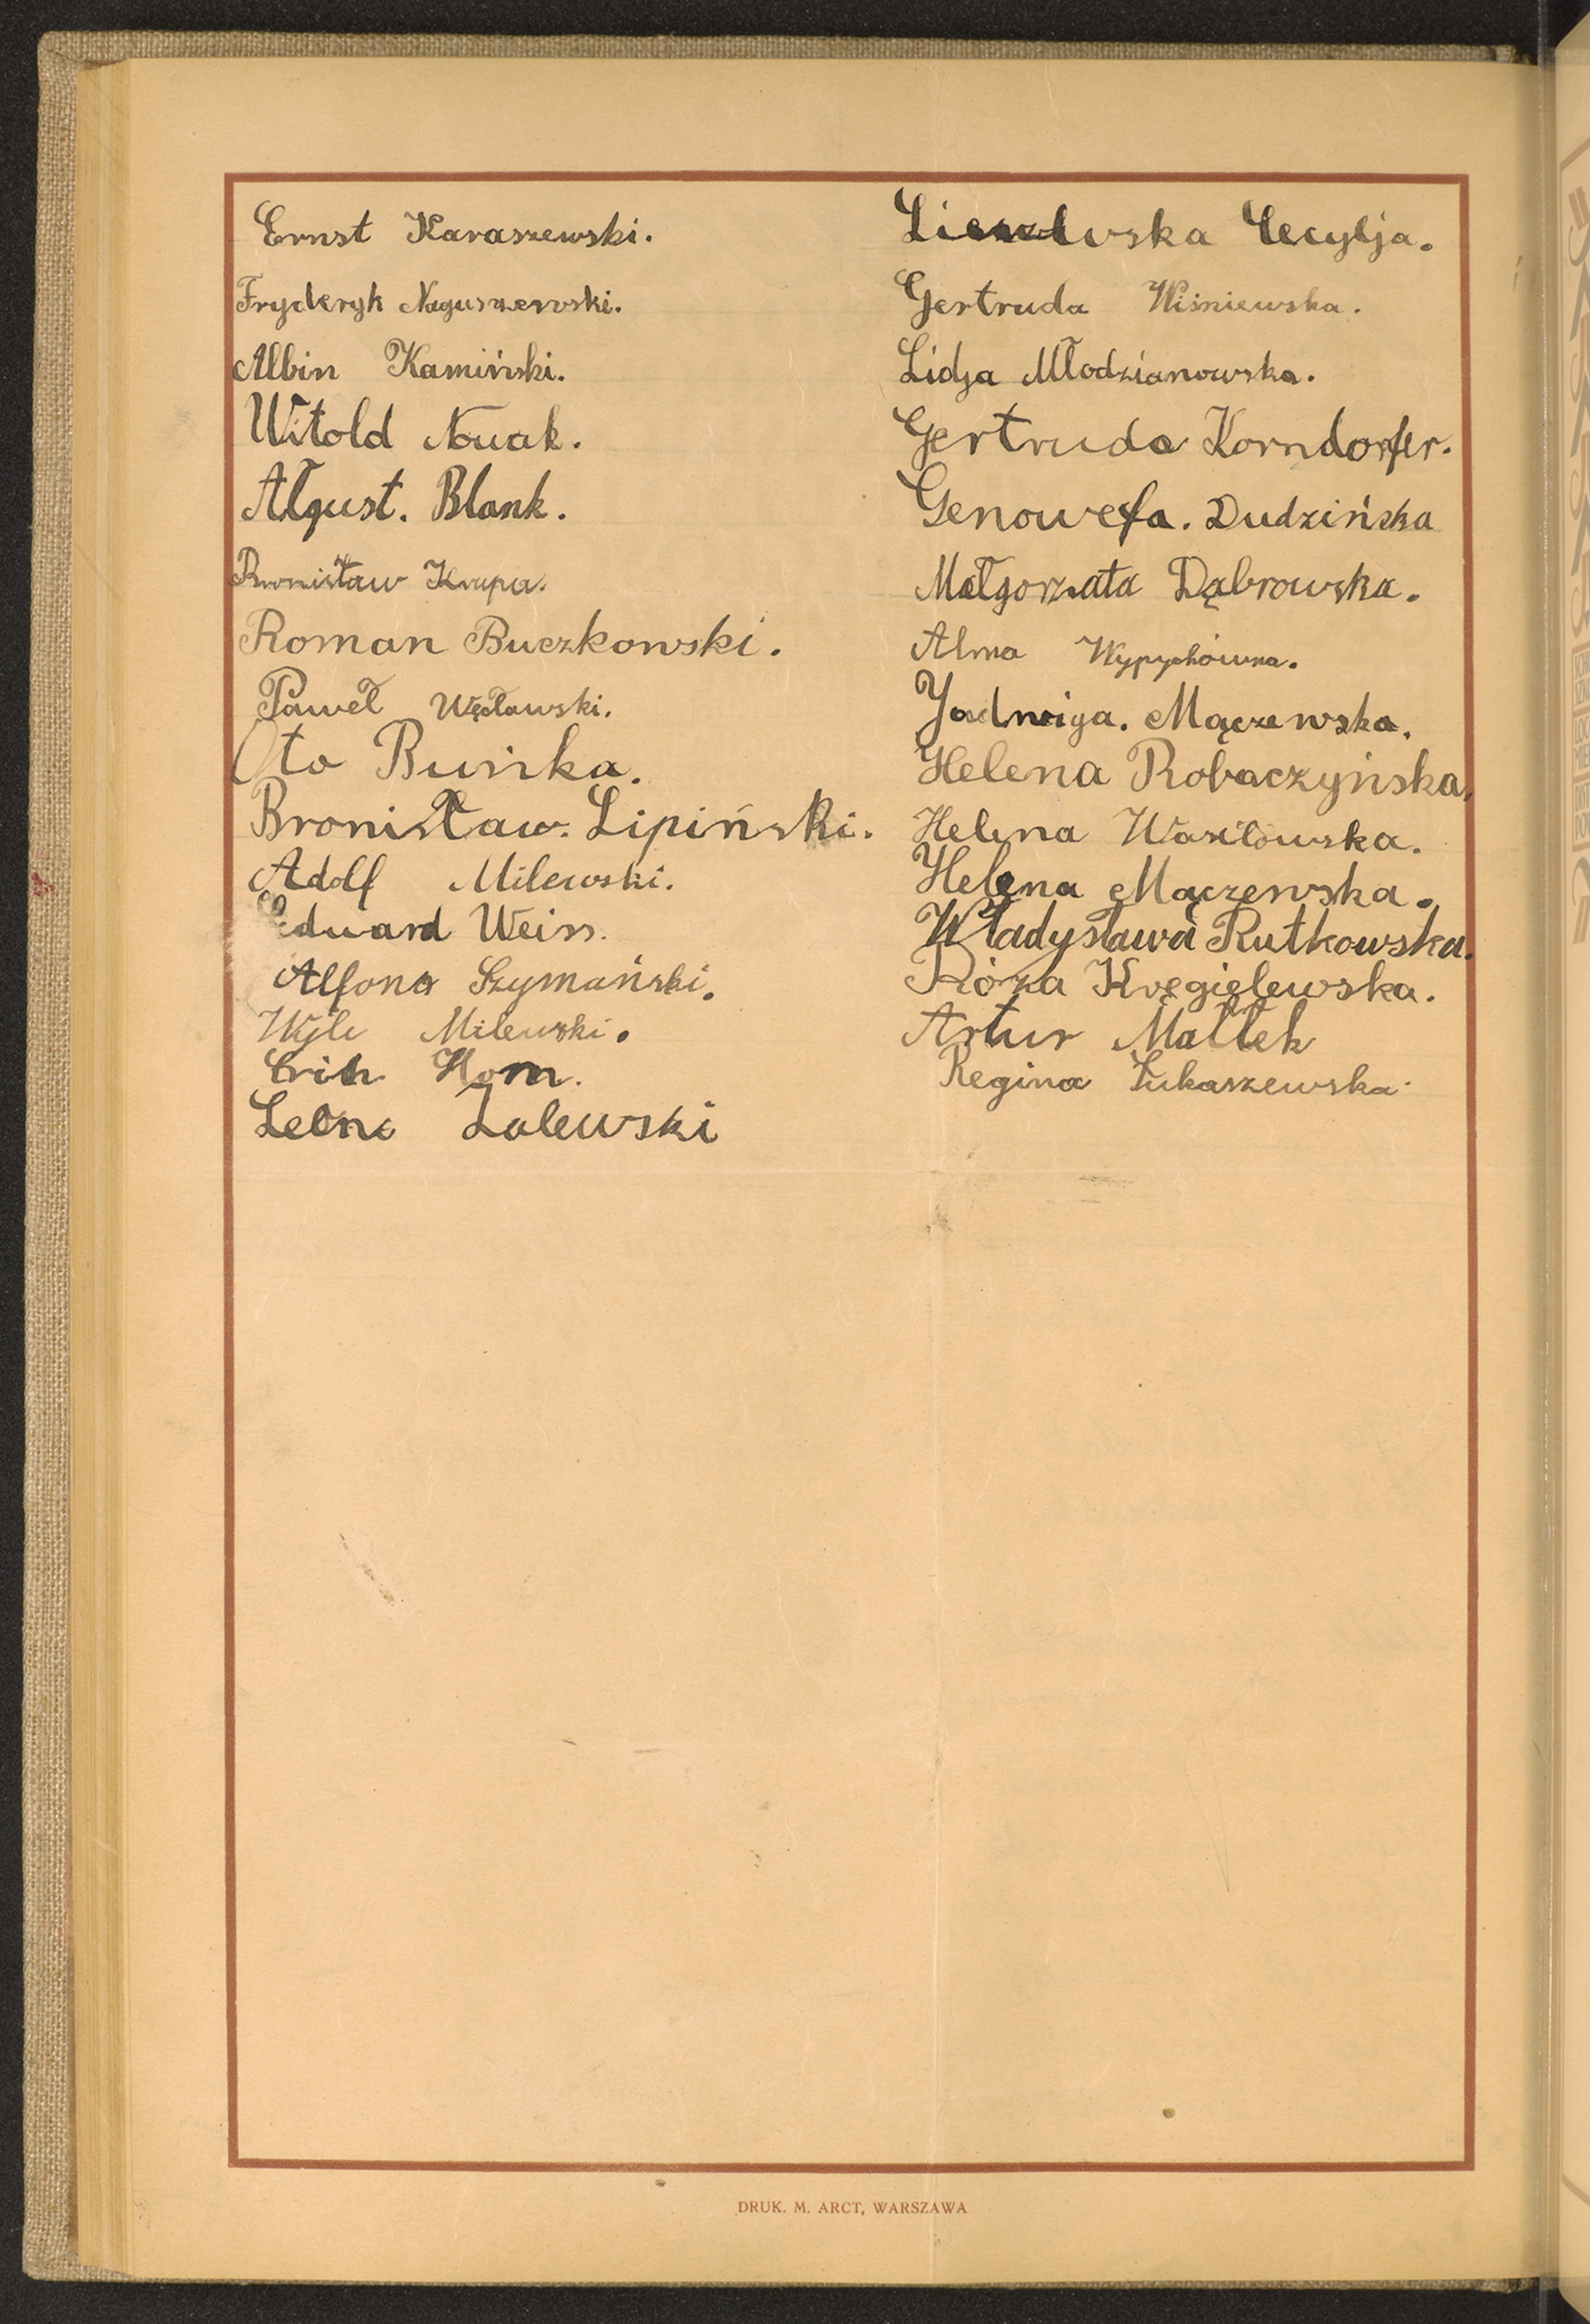 Ernst Karaszewski.
Fryderyk Naguszewski.
Albin Kamiński.
Witold Nowak.
Algust. Blank.
Bronisław Krupa.
Roman Buczkowski.
Paweł Węcławski.
Oto Buńka.
Bronisław. Lipiński.
Adolf Milewski.
Edward Weiss.
Alfons Szymański.
Wyli Milewski.
Erih Horn.
Leon Lalewski
Cecylja.
Gertruda Wiśniewska.
Lidja Młodzianowska.
Gertruda Korndorfer.
Genowefa. Dudzińska
Małgorzata Dąbrowska.
Alma Wypychówna.
Jadwiga. Mączewska.
Helena Robaczyńska.
Helena Wasilowska.
Helena Mączewska.
Władysława Rutkowska.
Róża Kręgielewska.
Artur Mallek
Regina Łukaszewska.
DRUK. M. ARCT, WARSZAWA